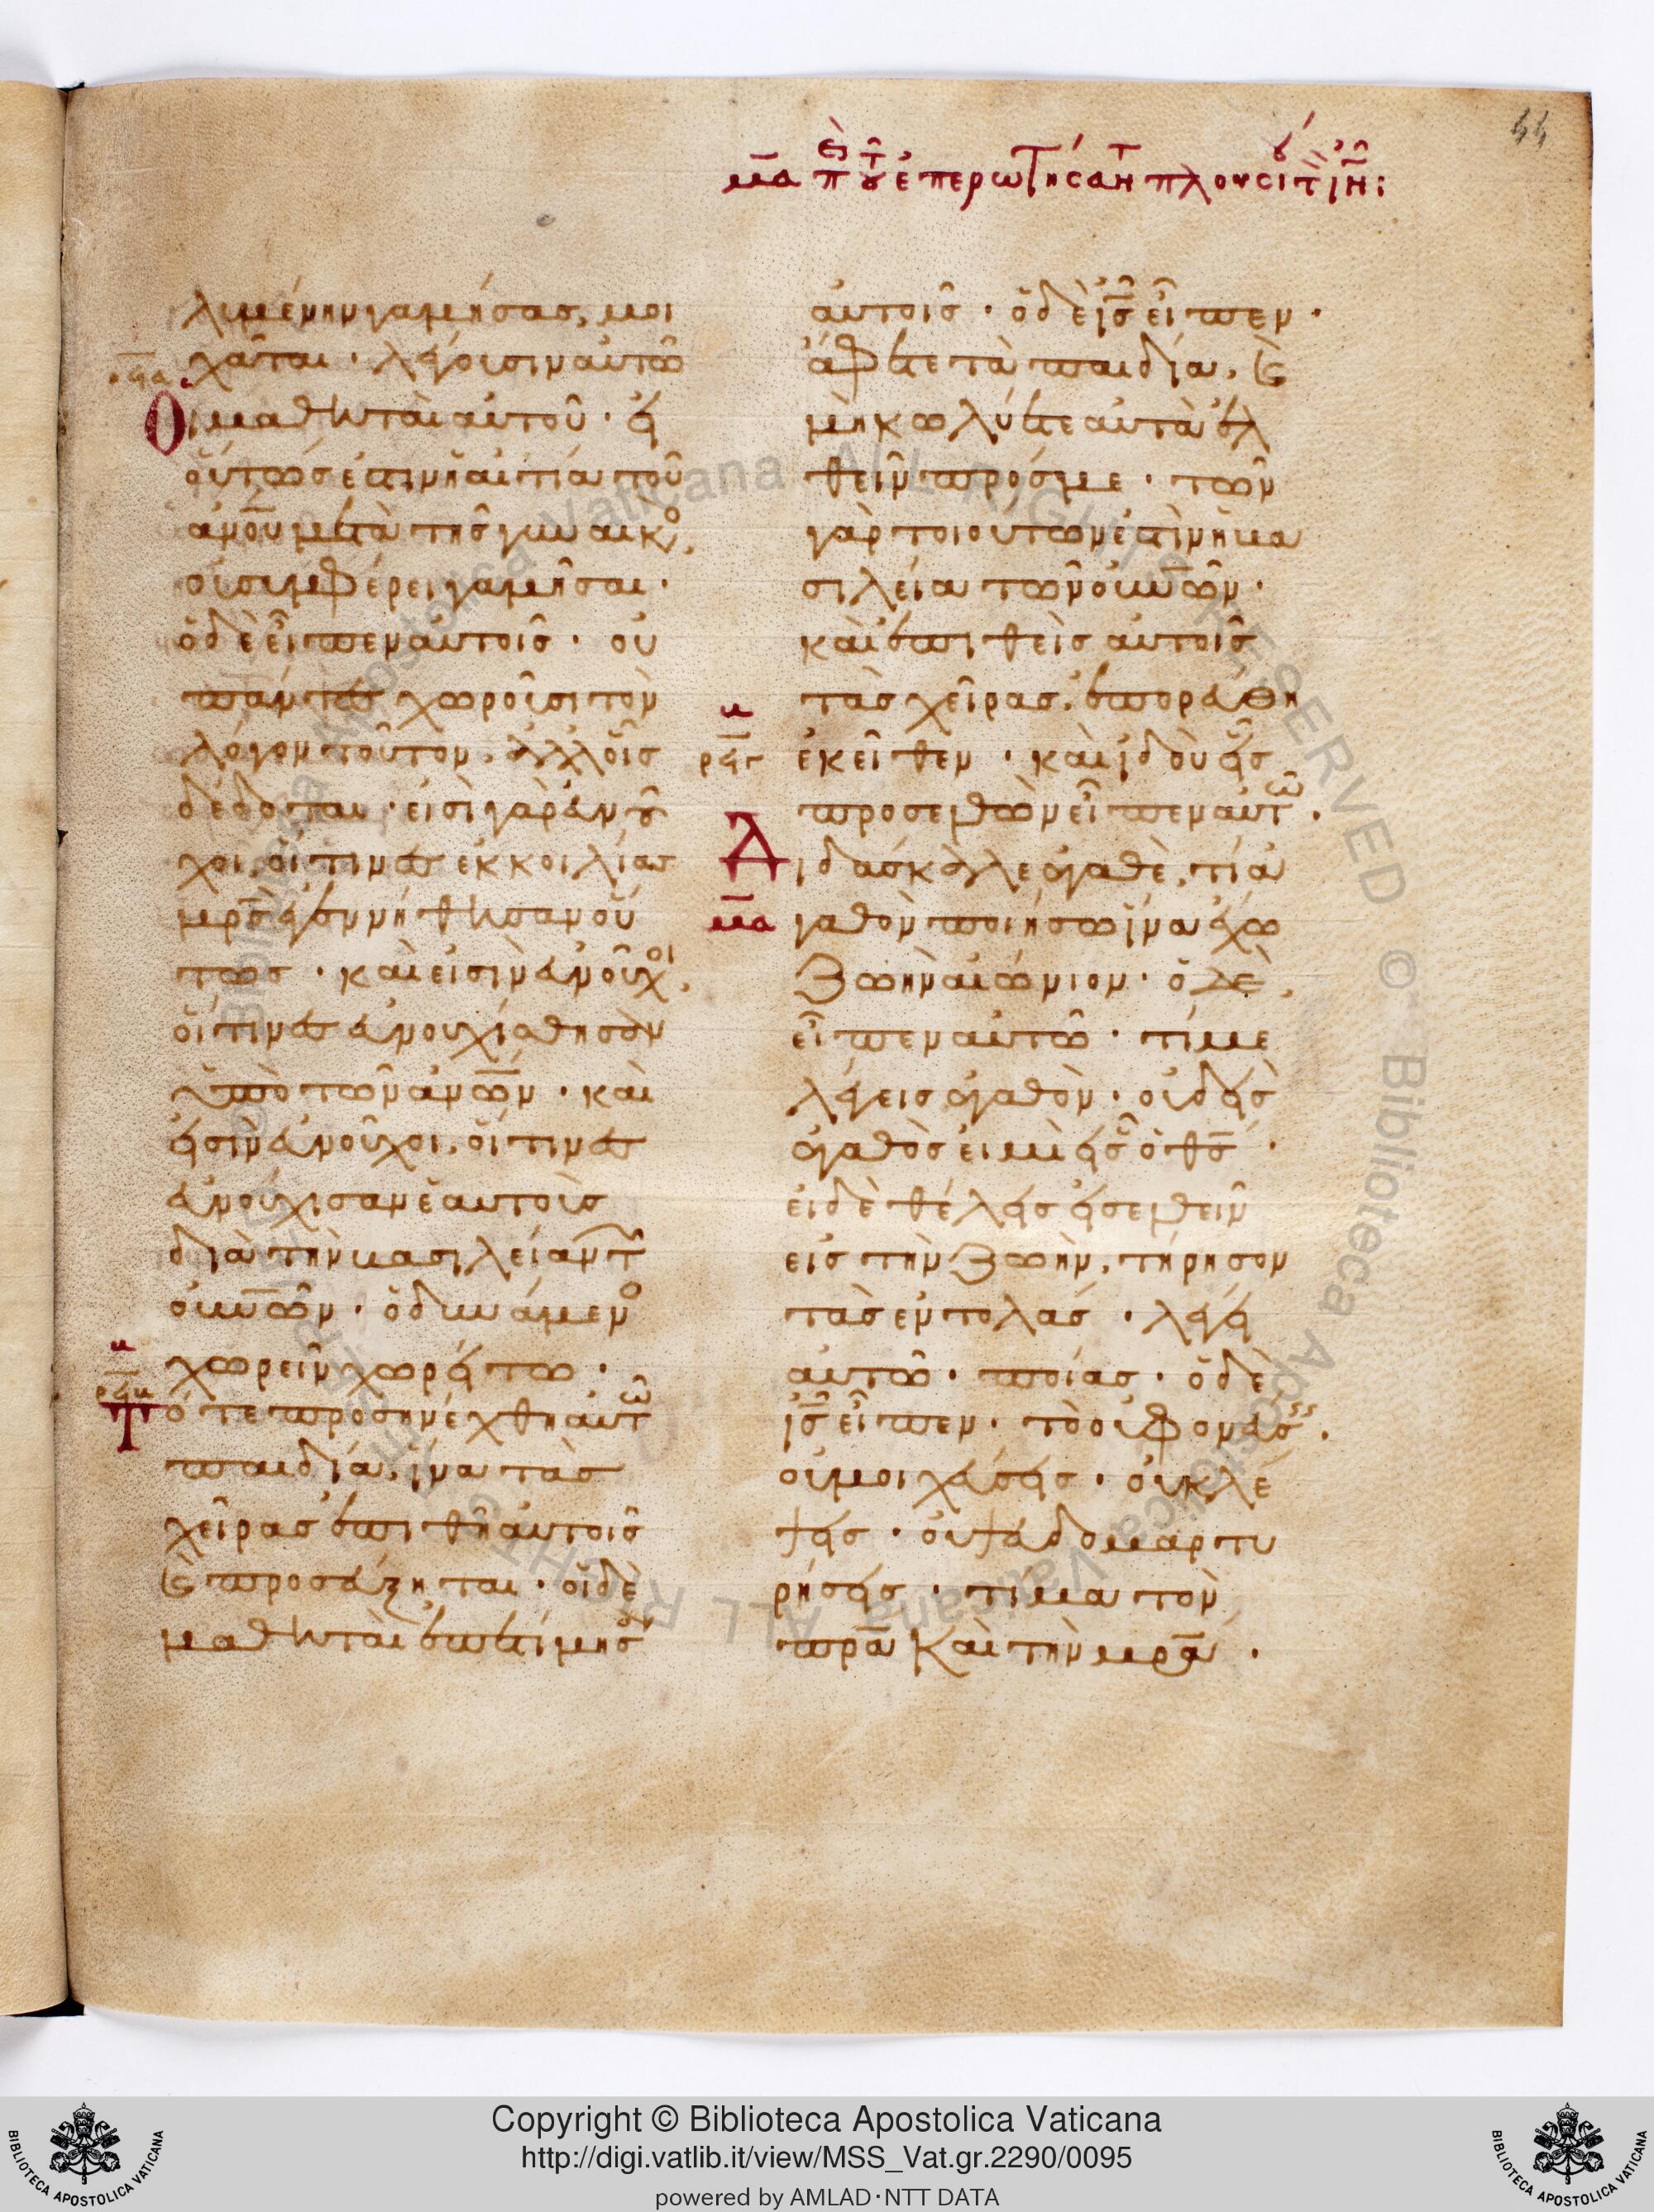 44
μα π ἐπερωτήσαντ πλουσί τ ιν:
λυμένην γαμήσας, μοι
χᾶται · λέγουσιν αὐτῶ
Οἱ μαθηταὶ αὐτοῦ · εἰ
οὕτως ἐστὶν ἡ αἰτία τοῦ
ἀν̅ο̅υ̅ μετὰ τῆς γυναικὸ,
οὐ συμφέρει γαμῆσαι ·
ὁ δὲ εἶπεν αὐτοῖς · οὐ
πάντες χωροῦσι τὸν
λόγον τοῦτον, ἀλλ οἷς
δέδοται · εἰσὶ γὰρ εὐνοῦ
χοι, οἵτινες ἐκ κοιλίας
μρ̅ς ἐγεννήθησαν οὕ
τως · καὶ εἰσὶν εὐνοῦχοι,
οἵτινες εὐνουχίσθησαν
ὑπὸ τῶν ἀν̅ω̅ν · καὶ
εἰσὶν εὐνοῦχοι, οἵτινες
εὐνούχισαν ἑαυτοὺς
διὰ τὴν βασιλείαν τ
οὐν̅ω̅ν · ὁ δυνάμενο
χωρεῖν χωρείτω ·
ρϟβ
Τότε προσηνέχθη αὐτῶ
παιδία, ἵνα τὰς
χεῖρας ἐπιθῆ αὐτοῖς
καὶ προσεύξηται · οἱ δὲ
μαθηταὶ ἐπετίμησ
αὐτοῖς · ὁ δὲ ι̅ς̅ εἶπεν ·
ἄφετε τὰ παιδία, καὶ
μὴ κωλύετε αὐτὰ ἐλ
θεῖν πρός με · τῶν
γὰρ τοιούτων ἐστὶν ἡ βα
σιλεία τῶν οὐν̅ω̅ν ·
καὶ ἐπιθεὶς αὐτοῖς
τὰς χεῖρας, ἐπορεύθη
β
ρϟγ
ἐκεῖθεν · καὶ ἰδοὺ εἷς
προσελθὼν εἶπεν αὐτῶ ·
Διδάσκαλε ἀγαθὲ, τί ἀ
μα
γαθὸν ποιήσω ἵνα ἔχω
ζωὴν αἰώνιον · ὁ δὲ,
εἶπεν αὐτῶ · τί με
λέγεις ἀγαθὸν · οὐδεὶς
ἀγαθὸς εἰ μὴ εἷς ὁ θ̅ς̅ ·
εἰ δὲ θέλεις εἰσελθεῖν
εἰς τὴν ζωὴν, τήρησον
τὰς ἐντολάς · λέγει
αὐτῶ · ποίας · ὁ δὲ
ι̅ς̅ εἶπεν · τὸ οὐ φονεύσεις ·
οὐ μοιχεύσεις · οὐ κλέ
ψεις · οὐ ψευδομαρτυ
ρήσεις · τίμα τὸν
πρ̅α̅ καὶ τὴν μρ̅α̅ ·
Copyright © Biblioteca Apostolica Vaticana
http://digi.vatlib.it/view/MSS_Vat.gr.2290/0095
powered by AMLAD·NTT DATA
BIBLIOTECA APOSTOLICA VATICANA
BIBLIOTECA APOSTOLICA VATICANA